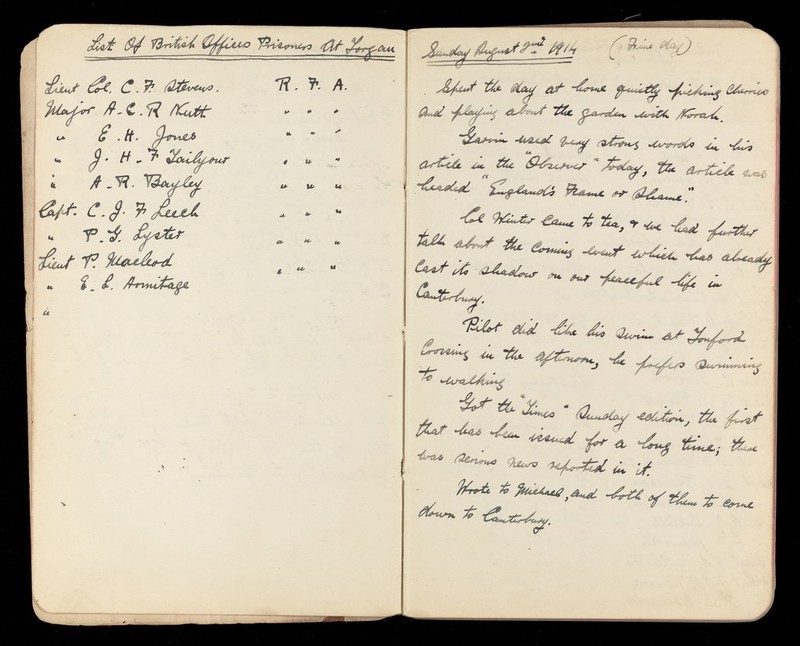 List Of British Officers Prisoners At Torgau
Lieut Col. C. F. Stevens. R. F. A.
Major A. C. R Nutt " " "
" E. H. Jones " " "
" J. H. F Tailyour " " "
" A. R. Bayley " " "
Capt. C. J. F Leech " " "
" P. G. Lyster " " "
Lieut P. Macleod " " "
" E. L. Armitage
"
Sunday August 2nd 1914 (Fine day)
Spent the day at home quietly picking cherries
and playing about the garden with Norah.
Garvin used very strong words in his
article in the "Observer" today, the article was
headed "England's Fame or Shame".
Col Winter came to tea, & we had further
talk about the coming event which has already
cast its shadow on our peaceful life in
Canterbury.
Pilot did like his swim at Tonford
Crossing in the afternoon, he prefers swimming
to walking
Got the "Times" Sunday edition, the first
that has been issued for a long time; there
was serious news reported in it.
Wrote to Michael, and both of them to come
down to Canterbury.